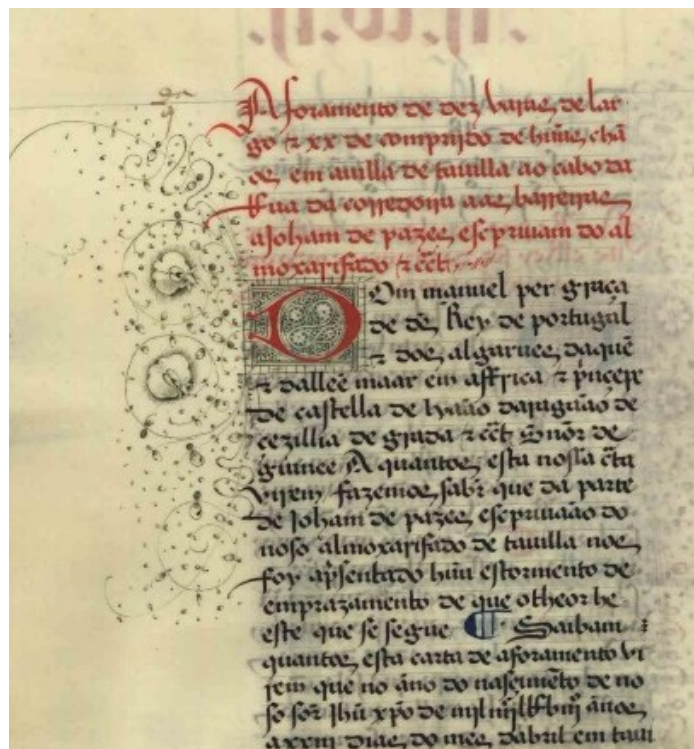 Aforamento de dez varas de lar
go & xx de comprido de hũus chã
os em a uilla de tauilla ao cabo da
Rua da corredoira aas barreiras
a Joham de pazes escpriuam do al
moxarifado & cet
Dom manuel per graça
de ds Rey de portugal
& dos algarues daquẽ
& dalleẽ maar em affrica & p̃ncepe
de castella de liaão daraguão de
cezillia de grada & cet Snõr de
guinee A quantos esta nossa cta
virem fazemos sabr que da parte
de Joham de pazes escpriuaão do
noso almoxarifado de tauilla nos
foy ap̃sentado hũu estormento de
emprazamento de que o theor he
este que se segue Saibam
quantos esta carta de aforamento vi
rem que no ãno do nasçimẽto de no
so sõr Jhũ xp̃o de mil ãnos
xxiij dias do mes dabril em taui